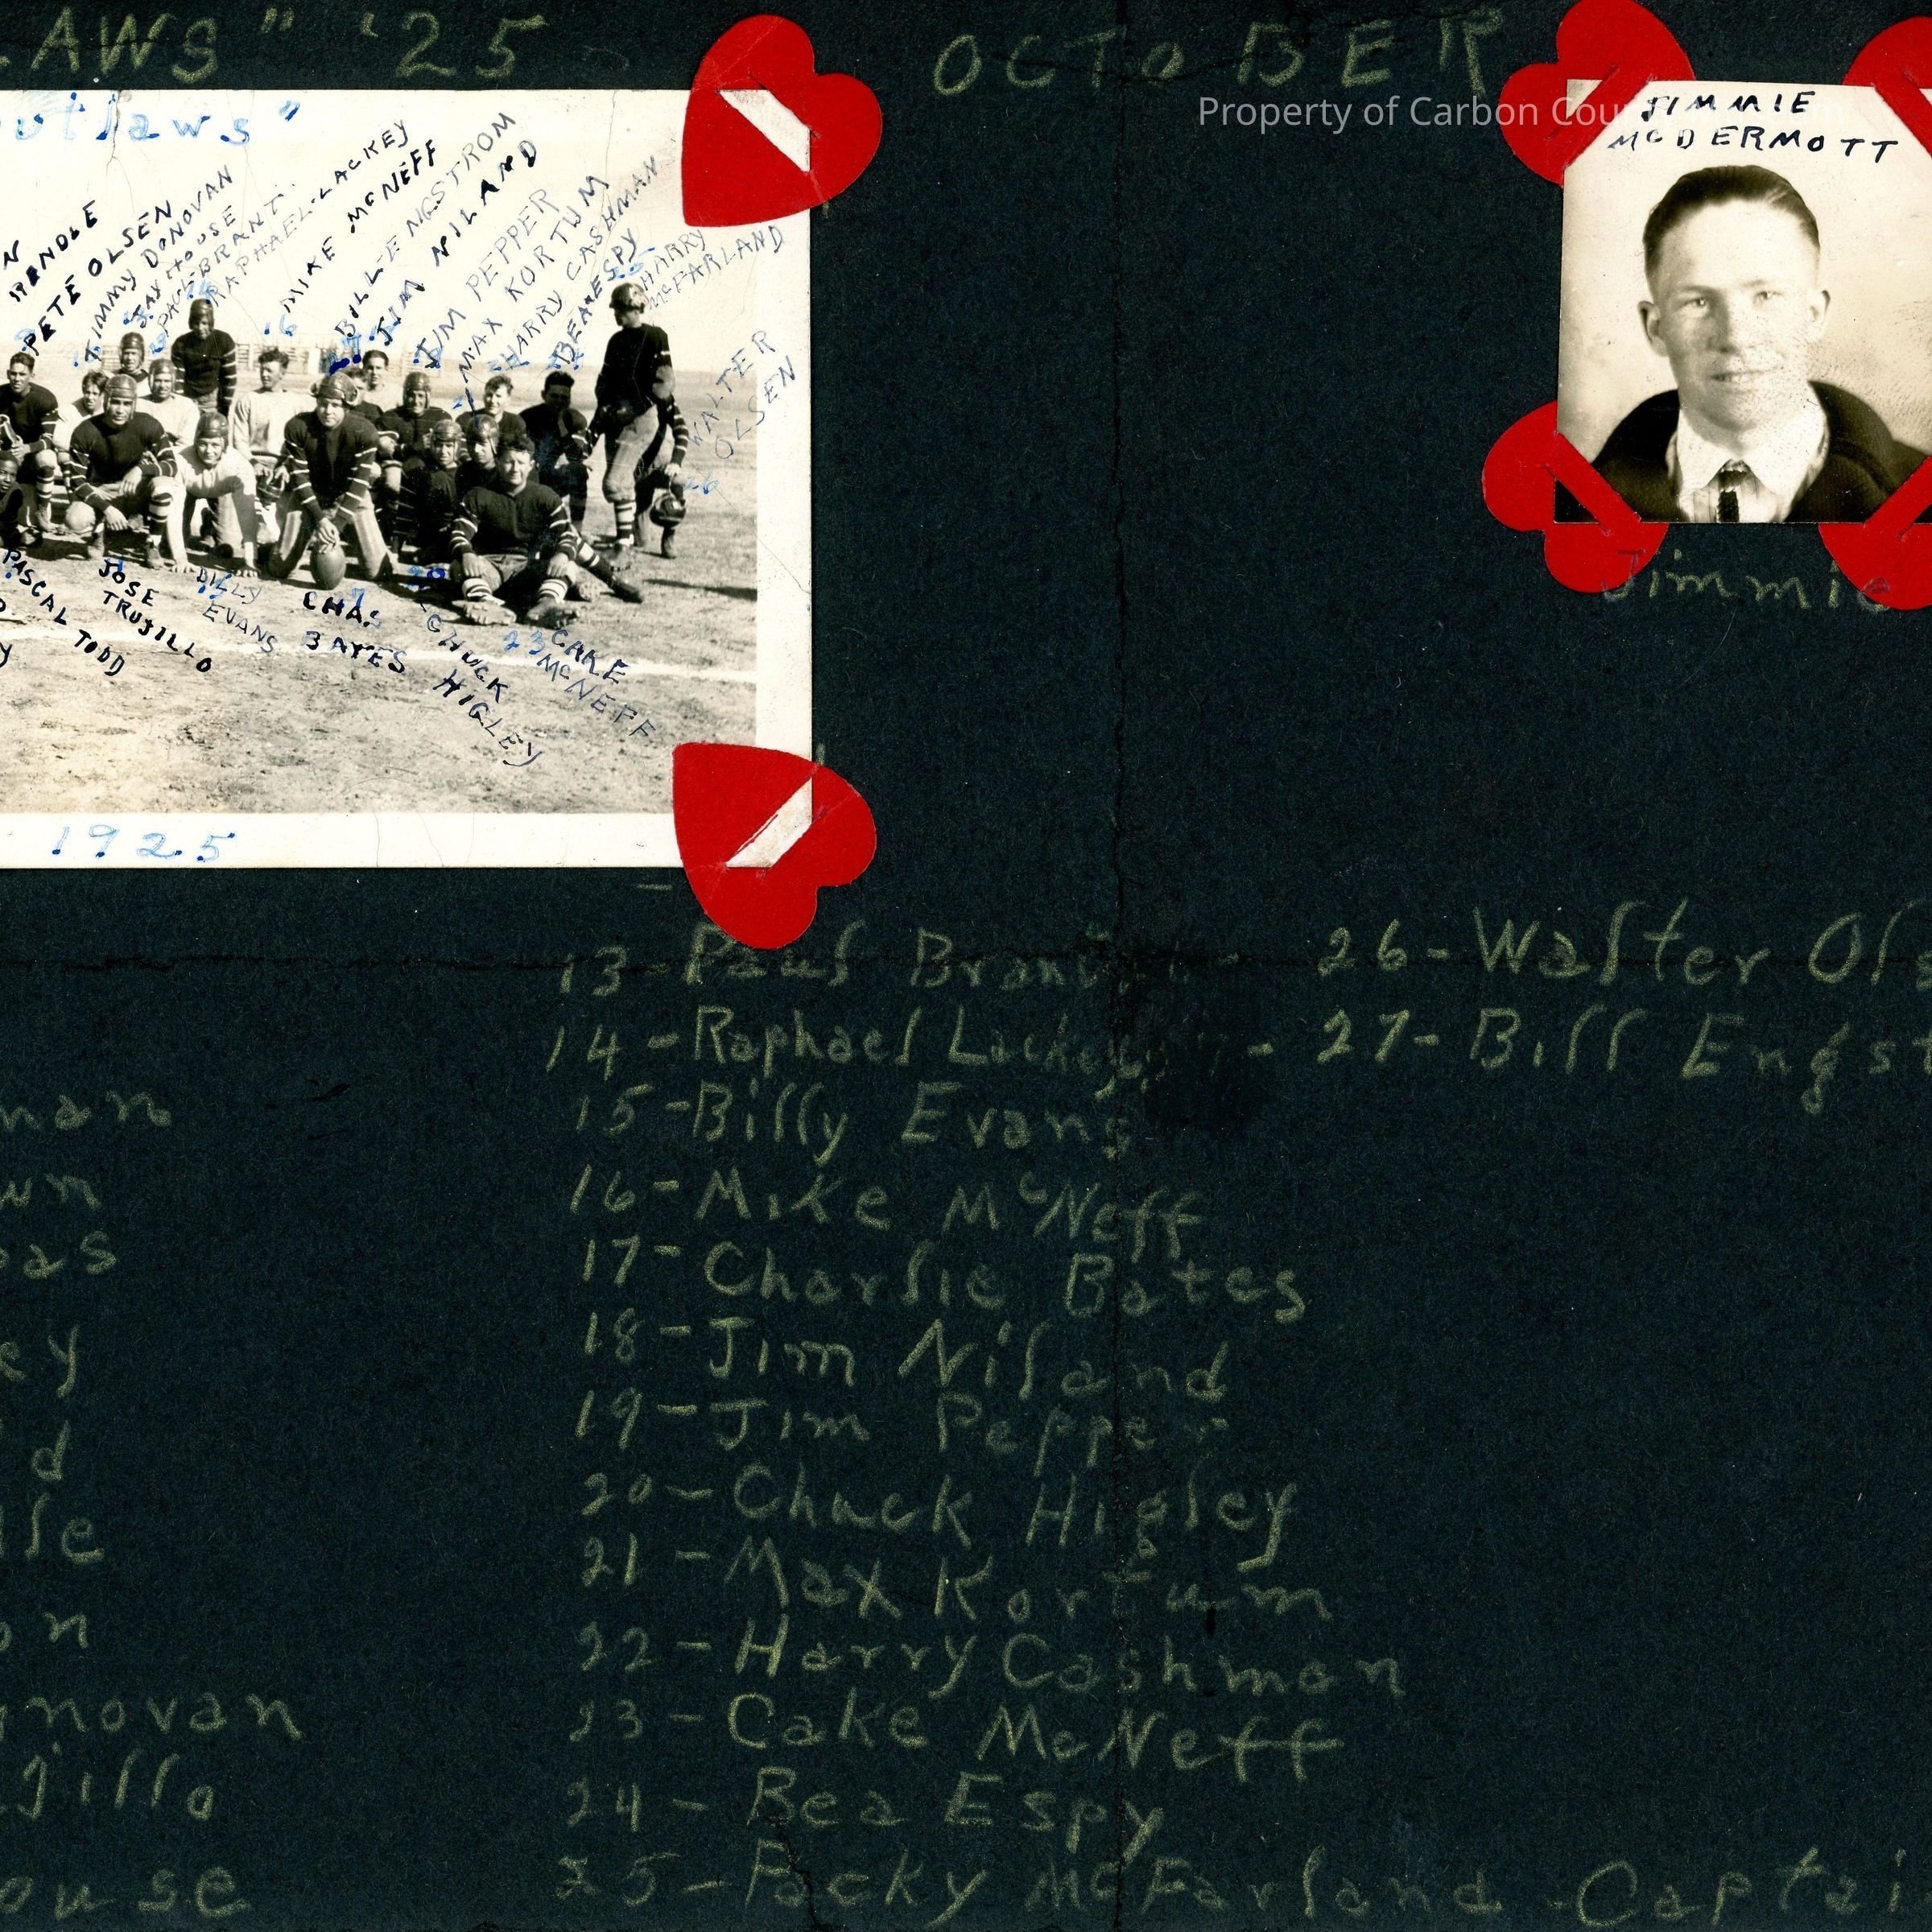 LAWS" '25 OCTOBER
Property of Carbon Cou
utlaws"
JIMMIE
McDERMOTT
PETE OLSEN
JIMMY DONOVAN
JAY HOUSE
PAUL BRANT.
RAPHAEL-LACKEY
16 MIKE McNEFF
BILL-ENGSTROM
JIM NILAND
JIM PEPPER
MAX KORTUM
HARRY CASHMAN
BEA ESPY
25
HARRY
McFARLAND
WALTER
OLSEN
26
PASCAL TODD
JOSE
TRUJILLO
BILLY
EVANS
CHAS
BATES
20
CHUCK
HIGLEY
23 CAKE
McNEFF
1925
Jimmie
13-Paul Brant
14-Raphael Lackey
15-Billy Evans
16-Mike McNeff
17-Charlie Bates
18-Jim Niland
19-Jim Pepper
20-Chuck Higley
21-Max Kortum
22-Harry Cashman
23-Cake McNeff
24-Bea Espy
25-Packy McFarland-Captai
26-Walter Ols
27-Bill Engst
man
wn
as
ey
d
le
on
novan
jillo
ouse